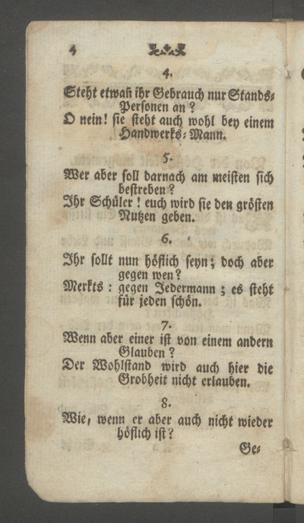 4
4.
Steht etwaß ihr Gebrauch nur Stands-
Personen an?
O nein! sie steht auch wohl bey einem
Handwerks-Mann.
5.
Wer aber soll darnach am meisten sich
bestreben?
Ihr Schüler! euch wird sie den grösten
Nutzen geben.
6.
Ihr sollt nun höflich seyn; doch aber
gegen wen?
Merkts: gegen Jedermann; es steht
für jeden schön.
7.
Wenn aber einer ist von einem andern
Glauben?
Der Wohlstand wird auch hier die
Grobheit nicht erlauben.
8.
Wie, wenn er aber auch nicht wieder
höflich ist?
Ge-